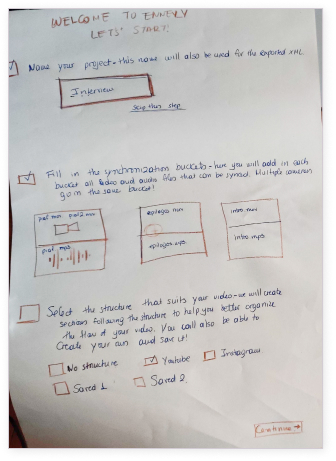 WELCOME TO ENNEVY
LETS' START!
Name your project - this name will also be used for the exported XML.
Interview
Skip this step
Fill in the synchronization buckets - here you will add in each
bucket all video and audio files that can be synced. Multiple cameras
go in the same bucket!
piaf.mov piaf2.mov
epilogos.mov
intro.mov
piaf.mp3
epilogos.mp3
intro.mp3
Select the structure that suits your video - we will create
sections following the structure to help you better organize
the flow of your video. You call also be able to
Create your own and save it!
No structure
Youtube
Instagram
Saved 1
Saved 2
Continue →